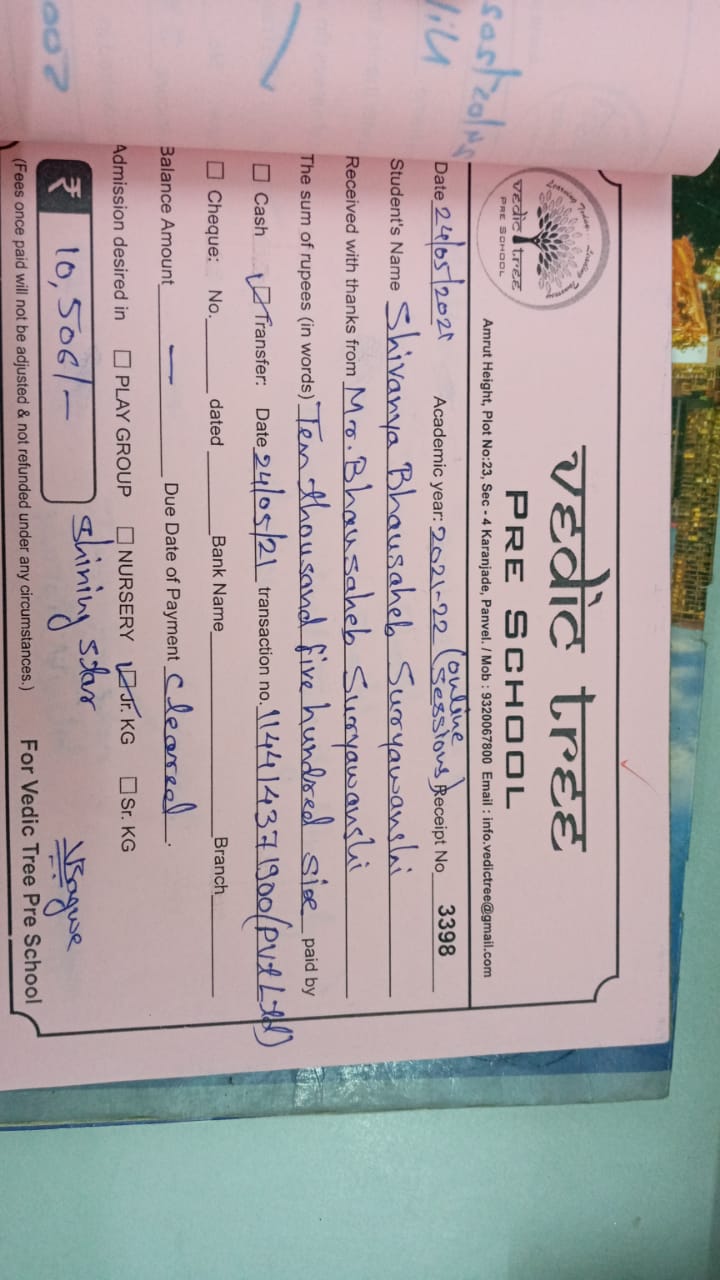 vedic tree
PRE SCHOOL
vedic tree
PRE SCHOOL
Amrut Height, Plot No:23, Sec - 4 Karanjade, Panvel. / Mob : 9320067800 Email : info.vedictree@gmail.com
Date 24/05/2021 Academic year: 2021-22 (online sessions) Receipt No 3398
Student's Name Shivanya Bhausaheb Suryawanshi
Received with thanks from Mr. Bhausaheb Suryawanshi
The sum of rupees (in words) Ten thousand five hundred six paid by
Cash Transfer: Date 24/05/21 transaction no. 114414371900 (Pvt Ltd)
Cheque: No. dated Bank Name Branch
Balance Amount — Due Date of Payment Cleared.
Admission desired in PLAY GROUP NURSERY Jr. KG Sr. KG
₹ 10,506/- shining star
(Fees once paid will not be adjusted & not refunded under any circumstances.) For Vedic Tree Pre School